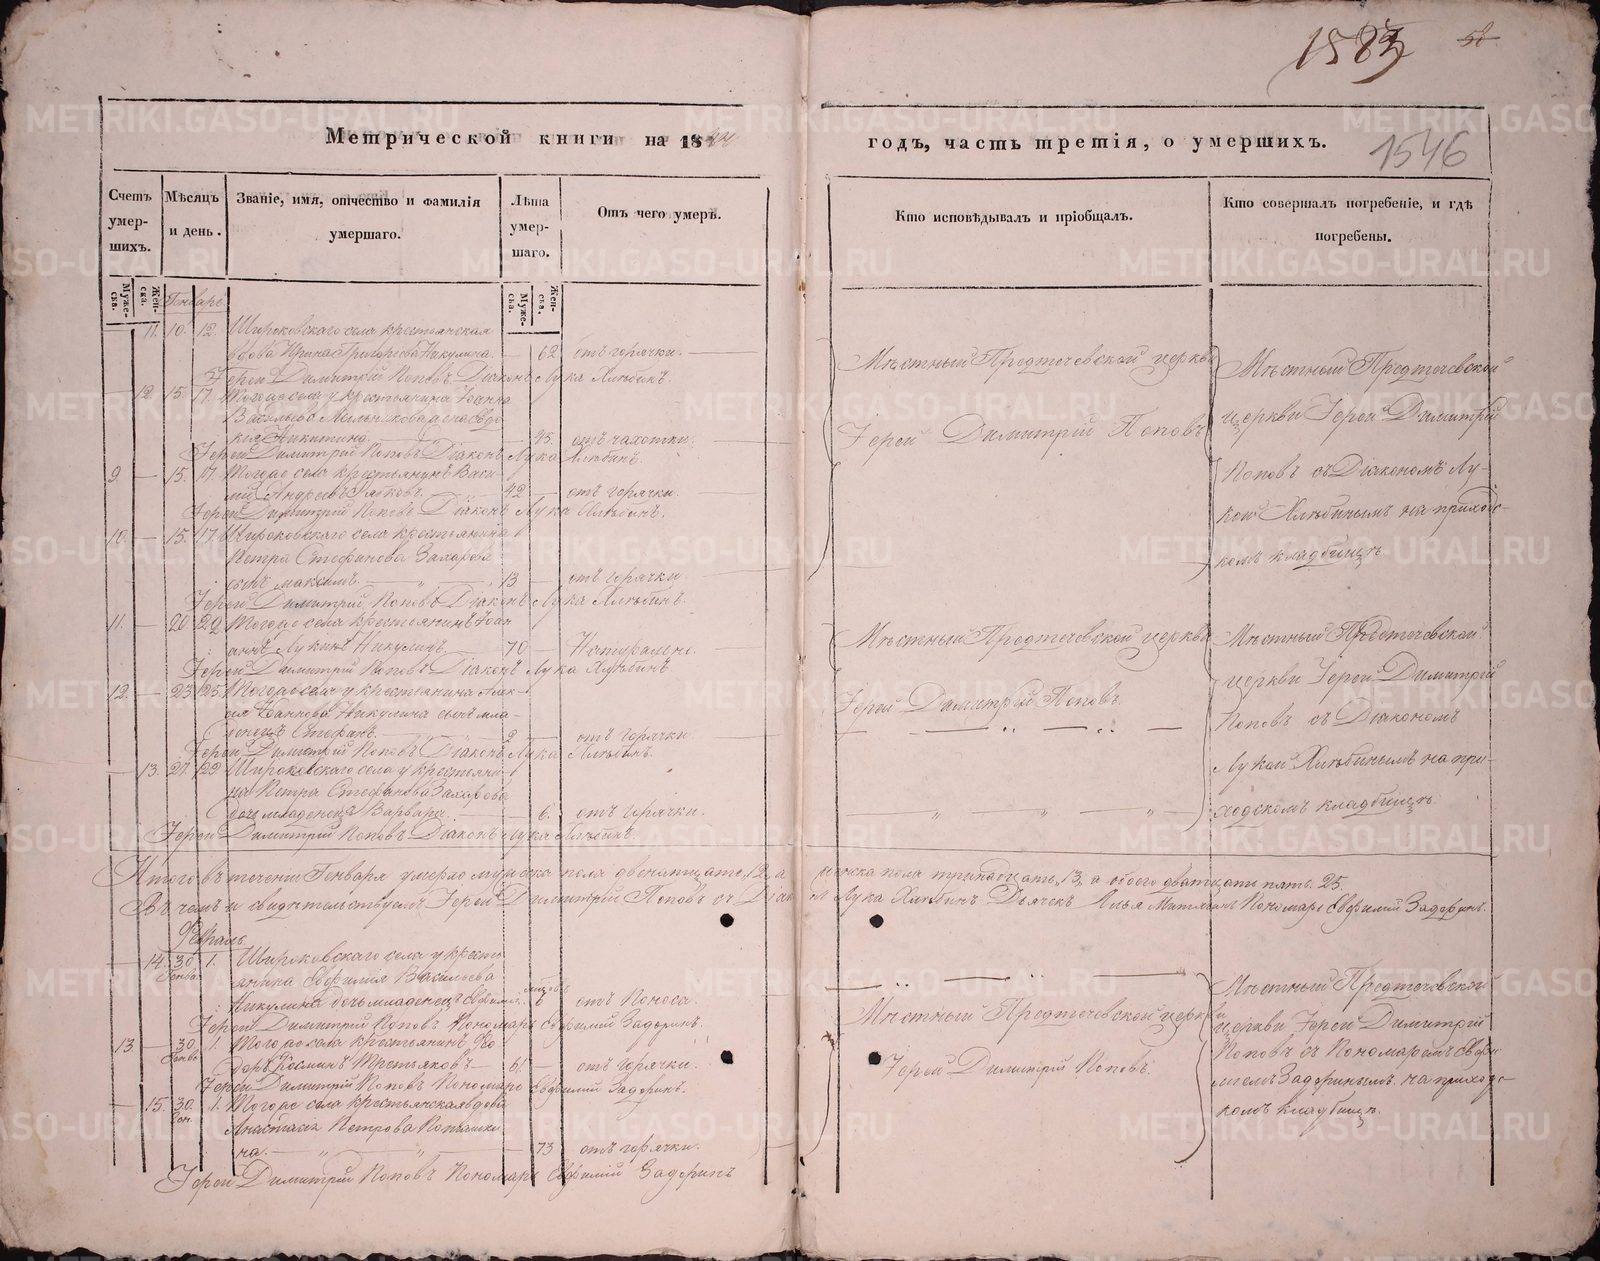 1546
Метрической книги на 1844
годъ, часть третія, о умершихъ.
Счетъ умер-шихъ.
Мѣсяцъ и день.
Званіе, имя, отчество и фамилія
умершаго.
Лѣта умер-шаго.
Отъ чего умеръ.
Кто исповѣдывалъ и пріобщалъ.
Кто совершалъ погребеніе, и гдѣ
погребены.
Муже-ска.
Жен-ска.
Генварь
Муже-ска.
Жен-ска.
11. 10. 12. Широковскаго села крестьянская
вдова Ирина Григорьева Никулина. — 62 отъ горячки.
Іерей Димитрій Поповъ Діаконъ Лука Хлѣбинъ.
— 12. 15. 17. Тогоже села у крестьянина Іоанна
Васильева Мельникова жена Евдо-
кія Никитина — отъ чахотки.
Іерей Димитрій Поповъ Діаконъ Лука Хлѣбинъ.
9. — 15. 17. Тогоже села крестьянинъ Васи-
лій Андреевъ — 42 — отъ горячки.
Іерей Димитрій Поповъ Діаконъ Лука Хлѣбинъ.
10. — 15. 17. Широковскаго села крестьянина
Петра Стефанова Захарова
сынъ Максимъ. — 13 — отъ горячки
Іерей Димитрій Поповъ Діаконъ Лука Хлѣбинъ.
11. — 20 22 Тогоже села крестьянинъ Іоан
нъ Лукинъ Никулинъ — 70 — Натурально.
Іерей Димитрій Поповъ Діаконъ Лука Хлѣбинъ
12. — 23 25 Тогоже села у крестьянина Алек-
ѣя Іоаннова Никулина сынъ мла-
денецъ Стефанъ. — 2 — отъ горячки
Іерей Димитрій Поповъ Діаконъ Лука Хлѣбинъ.
— 13. 27. 29 Широковскаго села у крестьяни-
на Петра Стефанова Захарова
дочь младенецъ Варвара. — 6. отъ горячки.
Іерей Димитрій Поповъ Діаконъ Лука Хлѣбинъ.
Мѣстный Предтечевской церкви
Іерей Димитрій Поповъ
Мѣстный Предтечевской
церкви Іерей Димитрій
Поповъ съ Діакономъ Лу-
кою Хлѣбинымъ на приходс-
комъ кладбищѣ
Мѣстный Предтечевской церкви
Іерей Димитрій Поповъ.
Мѣстный Предтечевской
церкви Іерей Димитрій
Поповъ съ Діакономъ
Лукою Хлѣбинымъ на при-
ходскомъ кладбищѣ.
Итого въ теченіи Генваря умерло мужеска пола двенатцать, 12, а женска пола тринадцать, 13, а обоего дватцать пять. 25.
Въ чемъ и свидѣтельствуемъ Іерей Димитрій Поповъ съ Діак Лука Хлѣбинъ Дьячекъ Илья Пономарь Евфимій Задоринъ.
Февраль
— 14. 30 Генва. 1. Широковскаго села у кресть
янина Евфимія Васильева
Никулина дочь младенецъ 6 отъ Поноса.
Іерей Димитрій Поповъ Пономарь Евфимій Задоринъ.
13. — 30. Генва 1. Тогоже села крестьянинъ Ѳео
доръ Косминъ Третьяковъ — 61 — отъ горячки.
Іерей Димитрій Поповъ Пономарь Евфимій Задоринъ.
— 15. 30. Ген. 1. Тогоже села крестьянская вдова
Анастасія Петрова
на. — 73 отъ горячки.
Іерей Димитрій Поповъ Пономарь Евфимій Задоринъ
Мѣстный Предтечевской церкви
Іерей Димитрій Поповъ.
Мѣстный Предтечевской
церкви Іерей Димитрій
Поповъ съ Пономаремъ Евфи
міемъ Задоринымъ на приходс-
комъ кладбищѣ.
METRIKI.GASO-URAL.RU